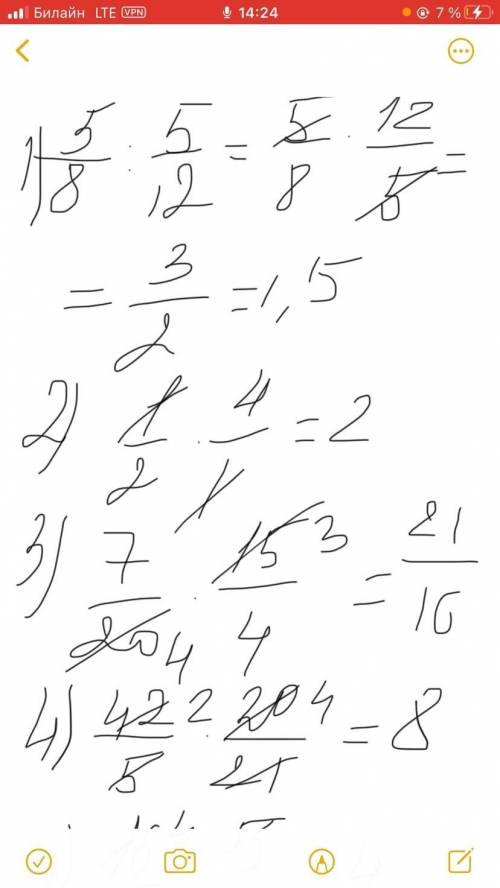 Билайн LTE VPN 14:24 7 %
1) 5/8 : 5/12 = 5/8 · 12/5 =
= 3/2 = 1,15
2) 1/2 · 4/1 = 2
3) 7/20 4 · 15 3/4 = 21/16
4) 42 2/5 · 20 4/21 = 8